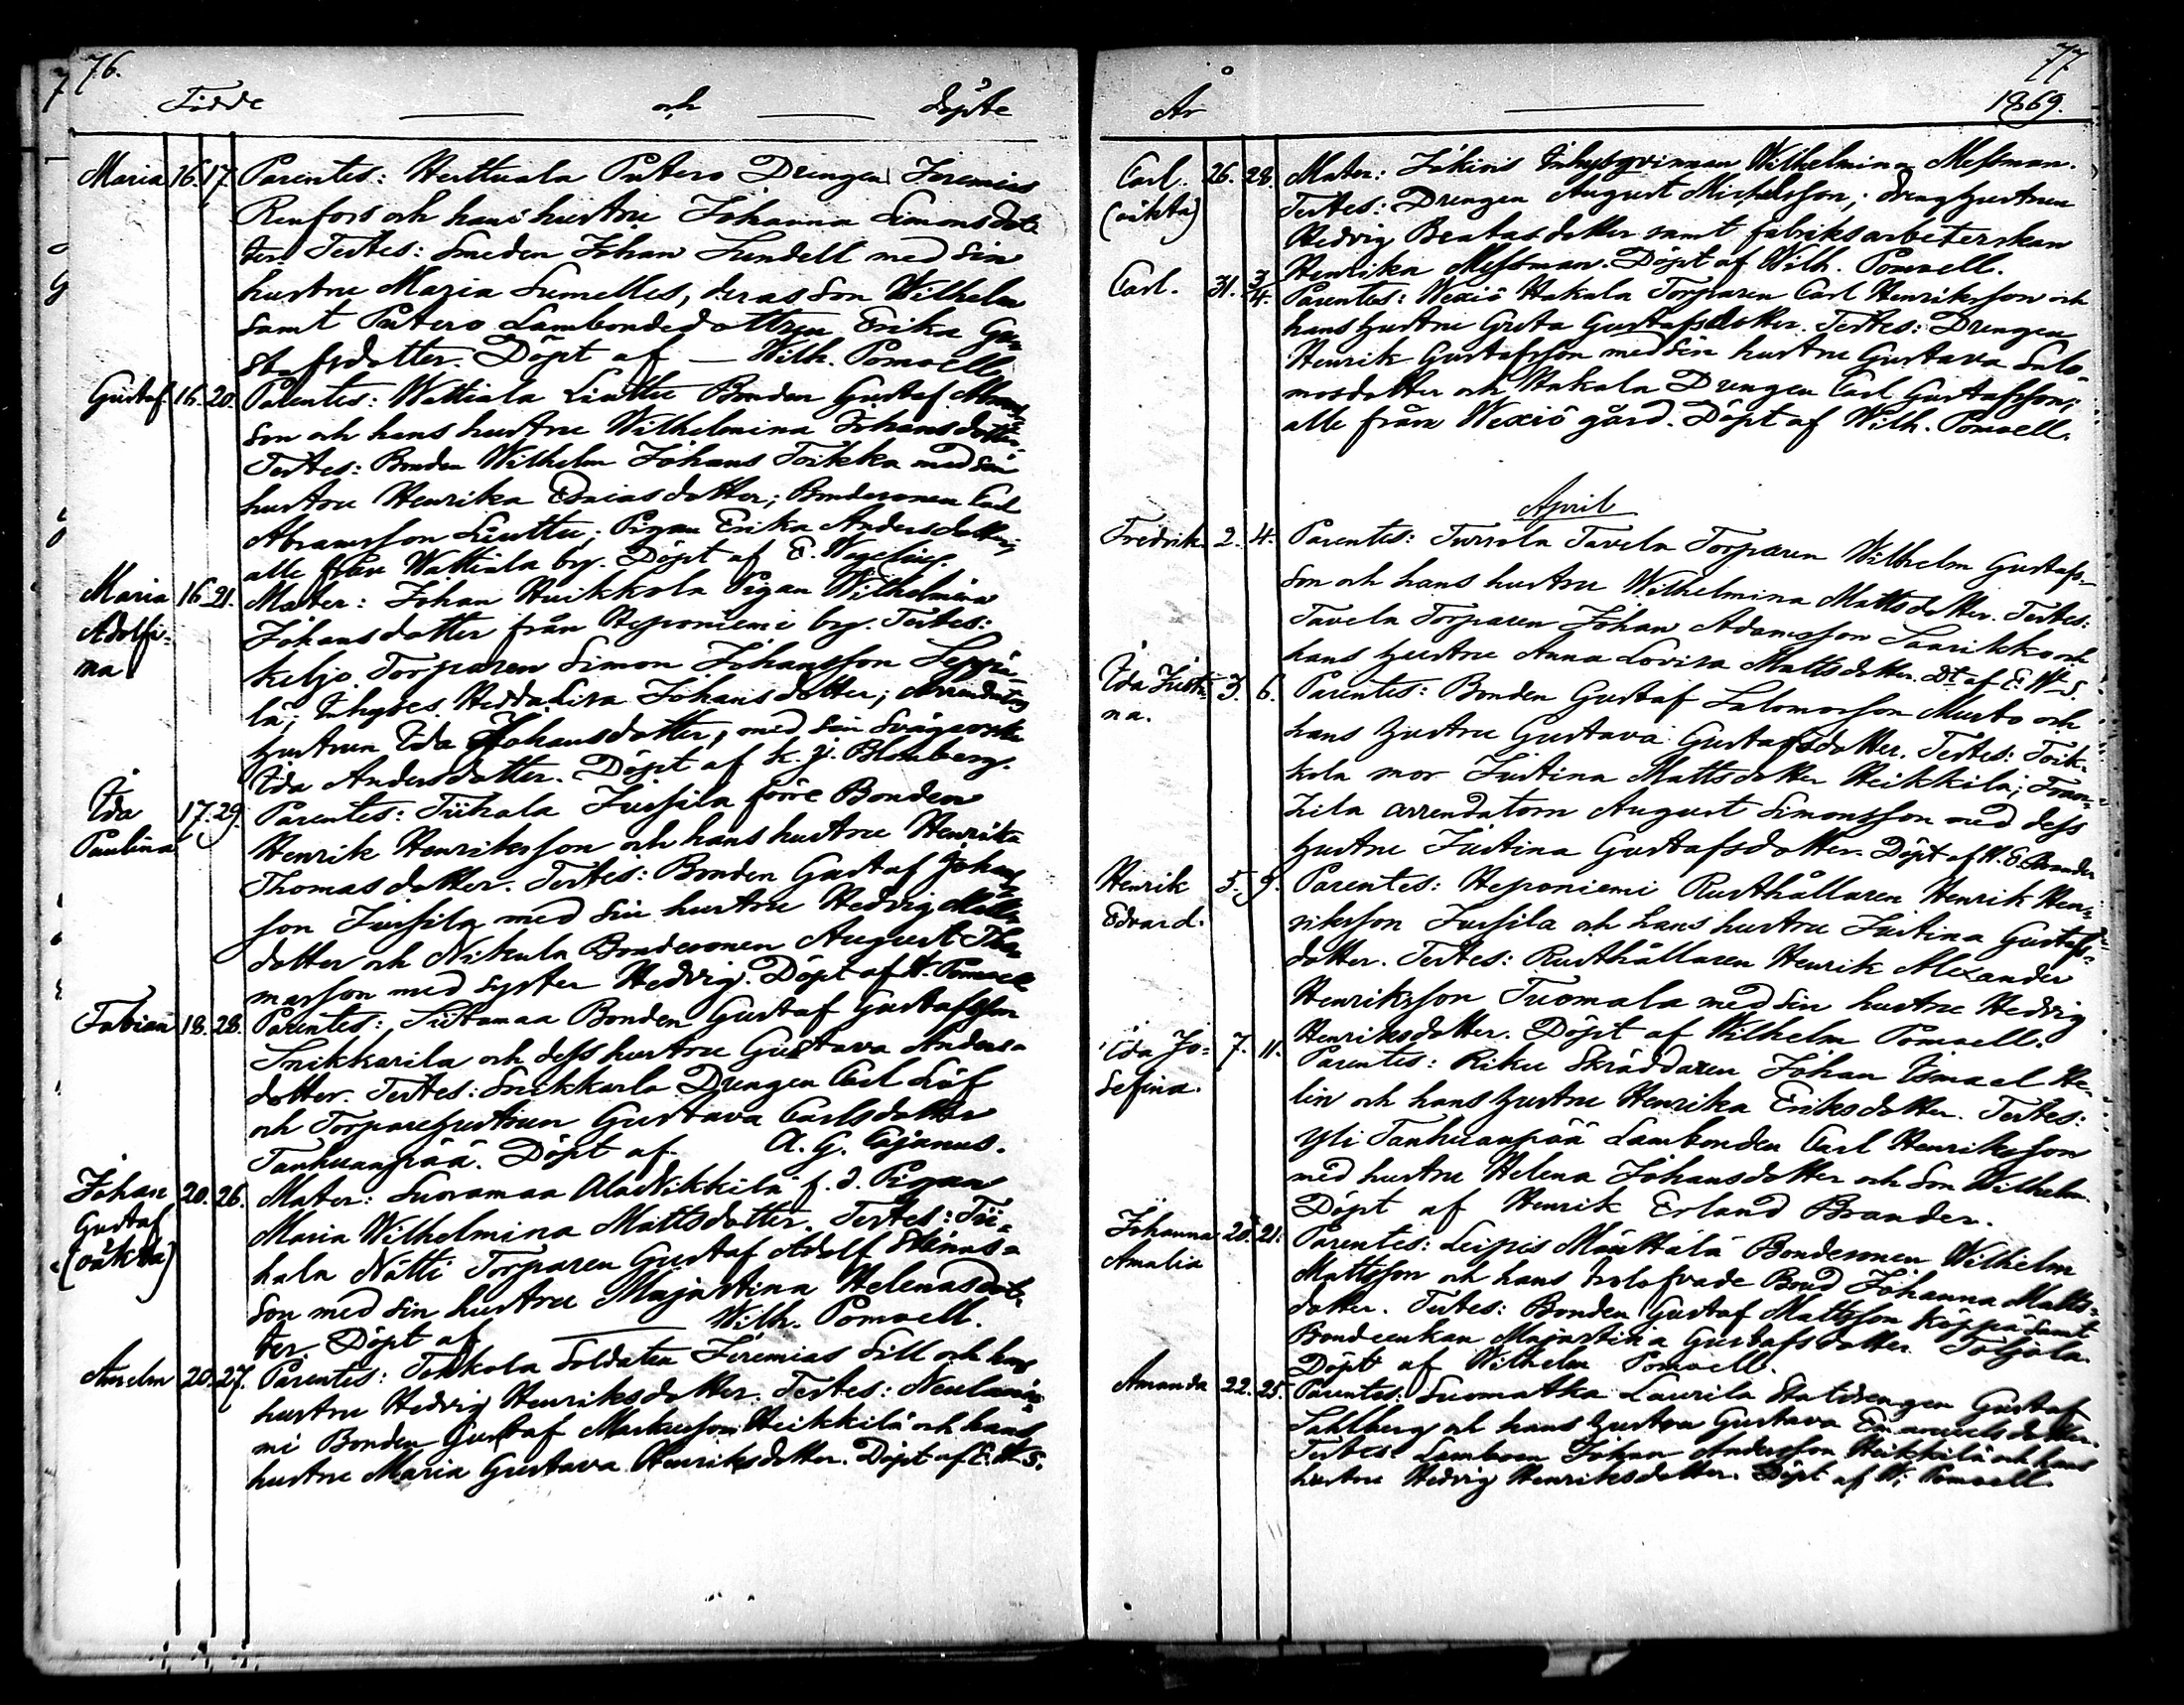 76.
Födde och döpte
Maria 16. 17. Parentes: Herttuala Putero Drengen Jeremias
Renfors och hans hustru Johanna Simonsdot-
ter. Testes: Smeden Johan Lundell med sin
hustru Maria Sumelles, deras son Wilhelm
samt Putero Lambondedottren Erika Gu-
stafsdotter. Döpt af — Wilh. Pomoell.
Gustaf. 16. 20. Parentes: Wattiala Liuttu Bonden Gustaf
son och hans hustru Wilhelmina Johansdotter.
Testes: Bonden Wilhelm Johans Toikka med sin
hustru Henrika Esaiasdotter; Bondesonen Carl
Abramsson Liuttu; Pigan Erika Andersdotter;
alle från Wattiala by. Döpt af E.
Maria 16. 21. Mater: Johan Huikkola Pigan Wilhelmina
Adolfi- Johansdotter från Heponiemi by. Testes:
na Keljo Torparen Simon Johansson Seppä-
lä; Inhyses Hedda Lisa Johansdotter; Arrendators
hustrun Ida Johansdotter, med sin svägerska
Ida Andersdotter. Döpt af K. J. Blomberg.
Ida 17. 29. Parentes: Tiihala Jussila förre Bonden
Paulina Henrik Henriksson och hans hustru Henrika
Thomasdotter. Testes: Bonden Gustaf Johans
son Jussila med sin hustru Hedvig Matts
dotter och Nikula Bondesonen August Tho-
masson med syster Hedvig. Döpt af W. Pomoell
Fabian 18. 28. Parentes: Siitamaa Bonden Gustaf Gustafsson
Snikkarila och dess hustru Gustava Anders-
dotter. Testes: Snikkarla Drengen Carl Löf
och Torparehustrun Gustava Carlsdotter
Tanhuanpää. Döpt af A. G. Cajanus.
Johan 20. 26. Mater: Suoramaa Ala Nikkilä f. d. Pigan
Gustaf Maria Wilhelmina Mattsdotter. Testes: Tii-
(oäkta) hala Nätti Torparen Gustaf Adolf
son med sin hustru Majastina Helenasdot-
ter. Döpt af — Wilh. Pomoell.
Anselm 20. 27. Parentes: Tokkola Soldaten Jeremias Sill och hans
hustru Hedvig Henriksdotter. Testes:
mi Bonden Gustaf Markusson Heikkilä och hans
hustru Maria Gustava Henriksdotter. Döpt af E. W-S.
77
År 1869.
Carl. 26. 28. Mater: Jokinis Inhysqvinnan Wilhelmina Messman.
(oäkta) Testes: Drengen August Michelsson; dränghustrun
Hedvig Beatasdotter samt fabriksarbeterskan
Henrika Messman. Döpt af Wilh. Pomoell.
Carl. 31. 3/4. Parentes: Wexiö Hakala Torparen Carl Henriksson och
hans hustru Greta Gustafsdotter. Testes: Drengen
Henrik Gustafsson med sin hustru Gustava Salo-
mosdotter och Hakala Drengen Carl Gustafsson;
alle från Wexiö gård. Döpt af Wilh. Pomoell.
April
Fredrik. 2. 4. Parentes: Turrola Tavela Torparen Wilhelm Gustafs-
son och hans hustru Wilhelmina Mattsdotter. Testes:
Tavela Torparen Johan Adamsson Saarikko och
hans hustru Anna Lovisa Mattsdotter. Dt af E. W-S.
Ida Justi- 3. 6. Parentes: Bonden Gustaf Salomosson Musto och
na. hans hustru Gustava Gustafsdotter. Testes: Toik-
kola mor Justina Mattsdotter Heikkilä; Fran-
kila arrendatorn August Simonsson med dess
hustru Justina Gustafsdotter. Döpt af H. E. Brander
Henrik 5. 9. Parentes: Heponiemi Rusthållaren Henrik Hen-
Edvard. riksson Jussila och hans hustru Justina Gustafs-
dotter. Testes: Rusthållaren Henrik Alexander
Henriksson Tuomala med sin hustru Hedvig
Henriksdotter. Döpt af Wilhelm Pomoell.
Ida Jo- 7. 11. Parentes: Riku Skräddaren Johan Ismael He-
sefina. lin och hans hustru Henrika Eriksdotter. Testes:
Yli Tanhuanpää Lambonden Carl Henriksson
med hustru Helena Johansdotter och son Wilhelm.
Döpt af Henrik Erland Brander.
Johanna 20. 21. Parentes: Leipis Mäuttälä Bondesonen Wilhelm
Amalia Mattsson och hans trolofvade Brud Johanna Matts-
dotter. Testes: Bonden Gustaf MattssonKöppä samt
Bondeenkan Majastina Gustafsdotter
Döpt af Wilhelm Pomoell.
Amanda 22. 25. Parentes: Suomatka Laurila Statdrengen Gustaf
Sahlberg och hans hustru Gustava Emanuelsdotter.
Testes: Lambonn Johan Andersson Heikkilä och hans
hustru Hedvig Henriksdotter. Döpt af W. Pomoell.